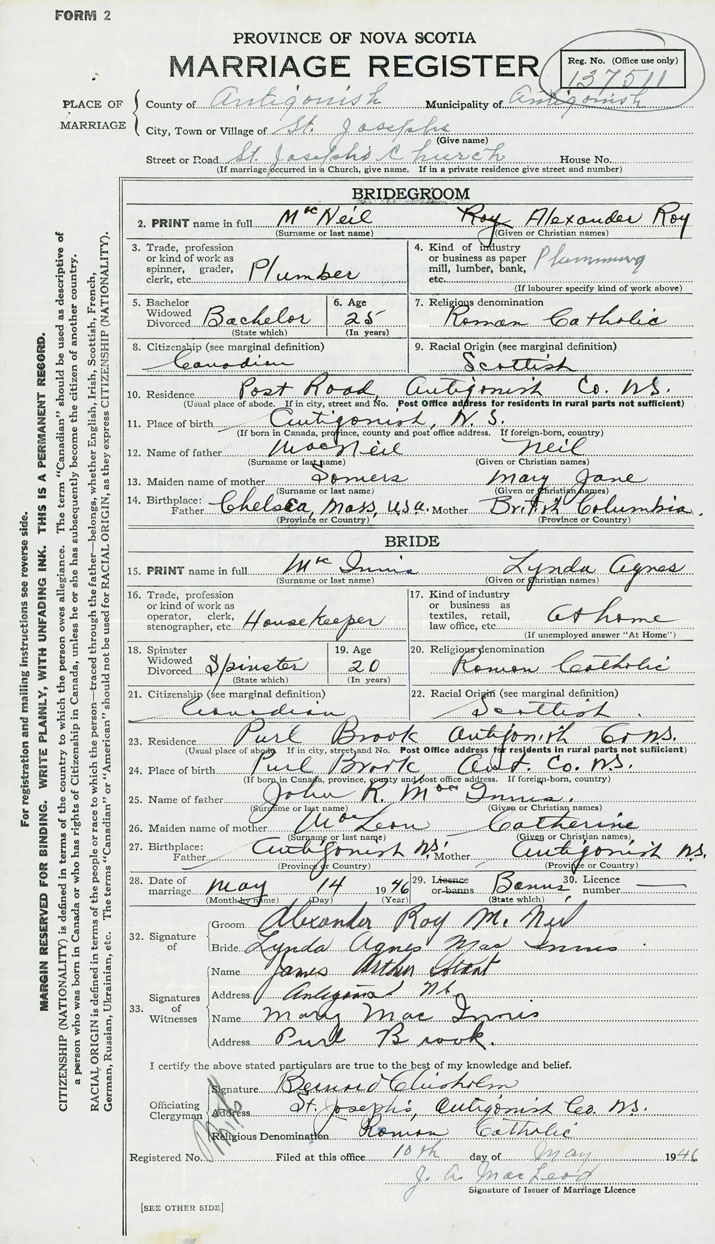 FORM 2
PROVINCE OF NOVA SCOTIA
MARRIAGE REGISTER
Reg. No. (Office use only)
137511
PLACE OF MARRIAGE
County of Antigonish Municipality of Antigonish
City, Town or Village of St. Josephs
(Give name)
Street or Road St. Joseph's Church House No.
(If marriage occurred in a Church, give name. If in a private residence give street and number)
BRIDEGROOM
2. PRINT name in full McNeil Roy Alexander Roy
(Surname or last name) (Given or Christian names)
3. Trade, profession or kind of work as spinner, grader, clerk, etc. Plumber
4. Kind of industry or business as paper mill, lumber, bank, etc. Plumming
(If labourer specify kind of work above)
5. Bachelor Widowed Divorced Bachelor
(State which)
6. Age 25
(In years)
7. Religious denomination
Roman Catholic
8. Citizenship (see marginal definition)
Canadian
9. Racial Origin (see marginal definition)
Scottish
10. Residence Post Road, Antigonish Co. N.S.
(Usual place of abode. If in city, street and No. Post Office address for residents in rural parts not sufficient)
11. Place of birth Antigonish, N.S.
(If born in Canada, province, county and post office address. If foreign-born, country)
12. Name of father MacNeil Neil
(Surname or last name) (Given or Christian names)
13. Maiden name of mother Somers Mary Jane
(Surname or last name) (Given or Christian names)
14. Birthplace: Father Chelsea, Mass, U.S.A. Mother British Columbia.
(Province or Country) (Province or Country)
BRIDE
15. PRINT name in full McInnis Lynda Agnes
(Surname or last name) (Given or Christian names)
16. Trade, profession or kind of work as operator, clerk, stenographer, etc. Housekeeper
17. Kind of industry or business as textiles, retail, law office, etc. At home
(If unemployed answer "At Home")
18. Spinster Widowed Divorced Spinster
(State which)
19. Age 20
(In years)
20. Religious denomination
Roman Catholic
21. Citizenship (see marginal definition)
Canadian
22. Racial Origin (see marginal definition)
Scottish.
23. Residence Purl Brook Antigonish Co N.S.
(Usual place of abode. If in city, street and No. Post Office address for residents in rural parts not sufficient)
24. Place of birth Purl Brook Ant. Co. N.S.
(If born in Canada, province, county and post office address. If foreign-born, country)
25. Name of father John R. MacInnis.
(Surname or last name) (Given or Christian names)
26. Maiden name of mother Catherine
(Surname or last name) (Given or Christian names)
27. Birthplace: Father Antigonish N.S. Mother Antigonish N.S.
(Province or Country) (Province or Country)
28. Date of marriage May 14 1946
(Month by name) (Day) (Year)
29. Licence or banns Banns
(State which)
30. Licence number
32. Signature of
Groom Alexander Roy McNeil
Bride Lynda Agnes MacInnis.
33. Signatures of Witnesses
Name James Arthur
Address Antigonish N.S.
Name Mary MacInnis
Address Purl Brook.
I certify the above stated particulars are true to the best of my knowledge and belief.
Officiating Clergyman
Signature Bernard Chisholm
Address St. Joseph's, Antigonish Co. N.S.
Religious Denomination Roman Catholic
Registered No. Filed at this office 10th day of May 1946
J. A. MacLeod
Signature of Issuer of Marriage Licence
[SEE OTHER SIDE]
For registration and mailing instructions see reverse side.
MARGIN RESERVED FOR BINDING. WRITE PLAINLY, WITH UNFADING INK. THIS IS A PERMANENT RECORD.
CITIZENSHIP (NATIONALITY) is defined in terms of the country to which the person owes allegiance. The term "Canadian" should be used as descriptive of
a person who was born in Canada or who has rights of Citizenship in Canada, unless he or she has subsequently become the citizen of another country.
RACIAL ORIGIN is defined in terms of the people or race to which the person—traced through the father—belongs, whether English, Irish, Scottish, French,
German, Russian, Ukrainian, etc. The terms "Canadian" or "American" should not be used for RACIAL ORIGIN, as they express CITIZENSHIP (NATIONALITY).